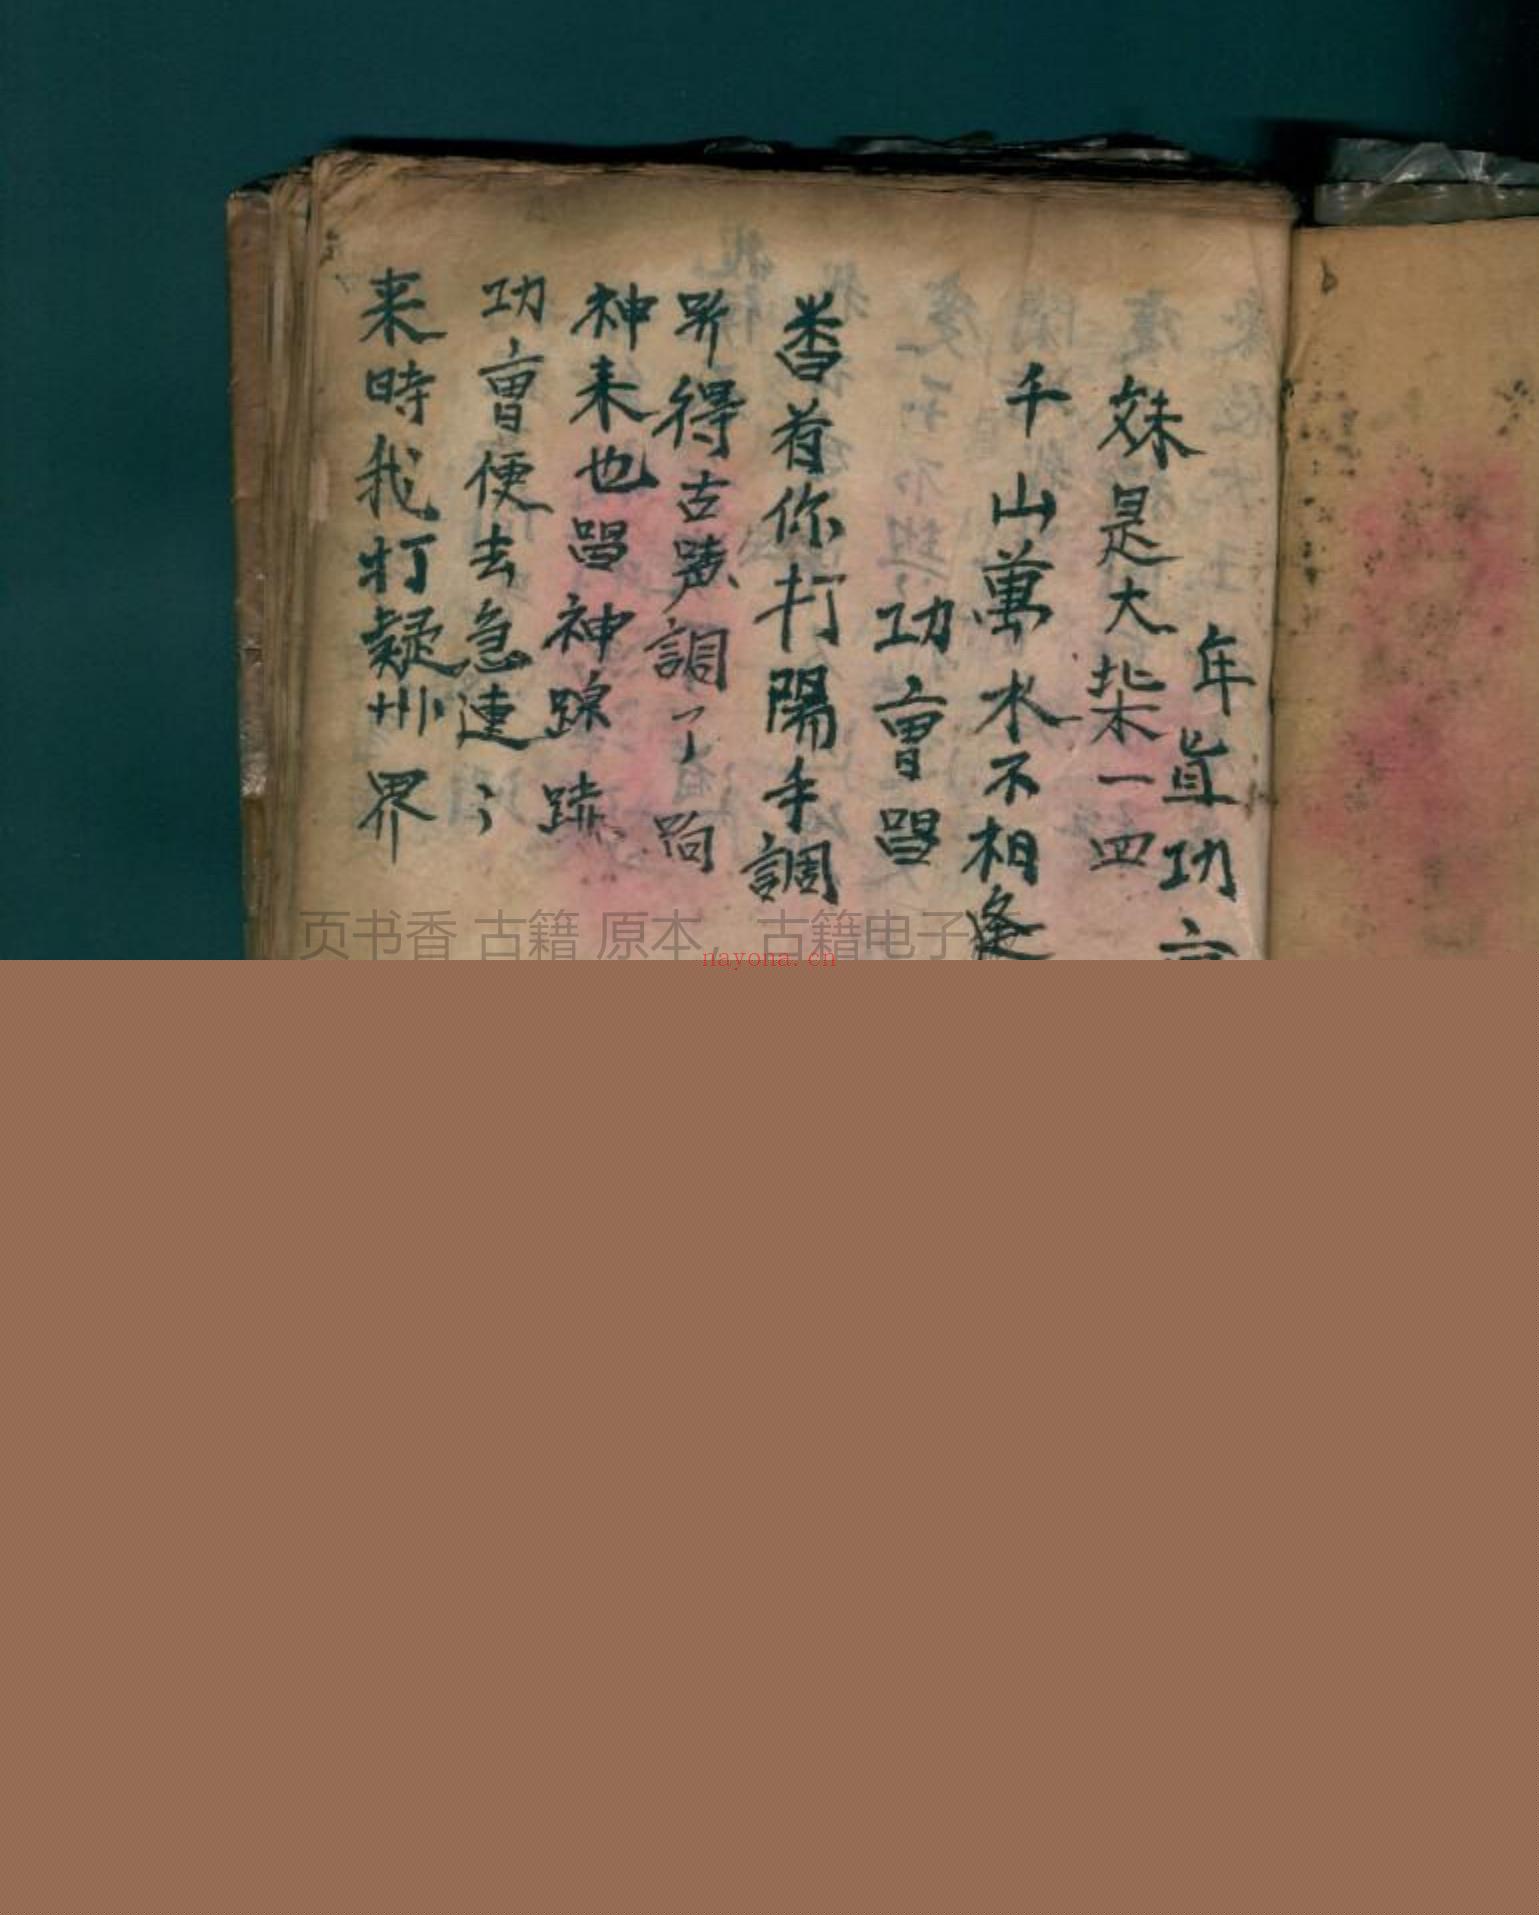 年真功
妹是大柴一四
千山萬水不相逢
功曹唱
番着你打陽手調
得古調了
神来也唱神
功曹便去急連
来時我打疑州界
页书香 古籍 原本，古籍电子
nayona.cn